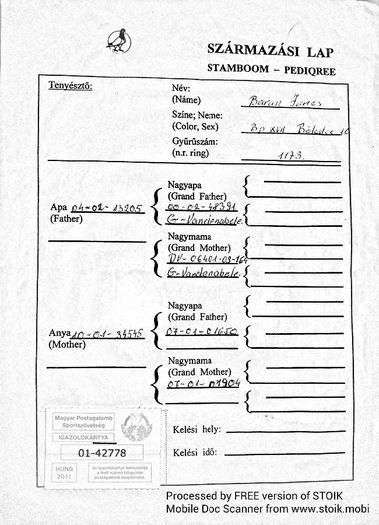 SZÁRMAZÁSI LAP
STAMBOOM – PEDIQREE
Tenyésztő:
Név:
(Name)
Színe; Neme:
(Color, Sex)
Bp XVII
Gyűrűszám:
(n.r. ring)
1173.
Nagyapa
(Grand Father)
Apa 04-02-13205
(Father)
00-02-48391
G-Vandenabele
Nagymama
(Grand Mother)
DV-06401-03-164
G-Vandenabele
Nagyapa
(Grand Father)
Anya 10-01-34545
(Mother)
07-01-01650
Nagymama
(Grand Mother)
07-01-07904
Magyar Postagalamb
Sportszövetség
IGAZOLÓKÁRTYA
01-42778
HUNG
2011
Az igazolókártya bemutatója
a fenti számú lábgyűrűs
postagalamb tulajdonosa.
Kelési hely:
Kelési idő:
Processed by FREE version of STOIK
Mobile Doc Scanner from www.stoik.mobi